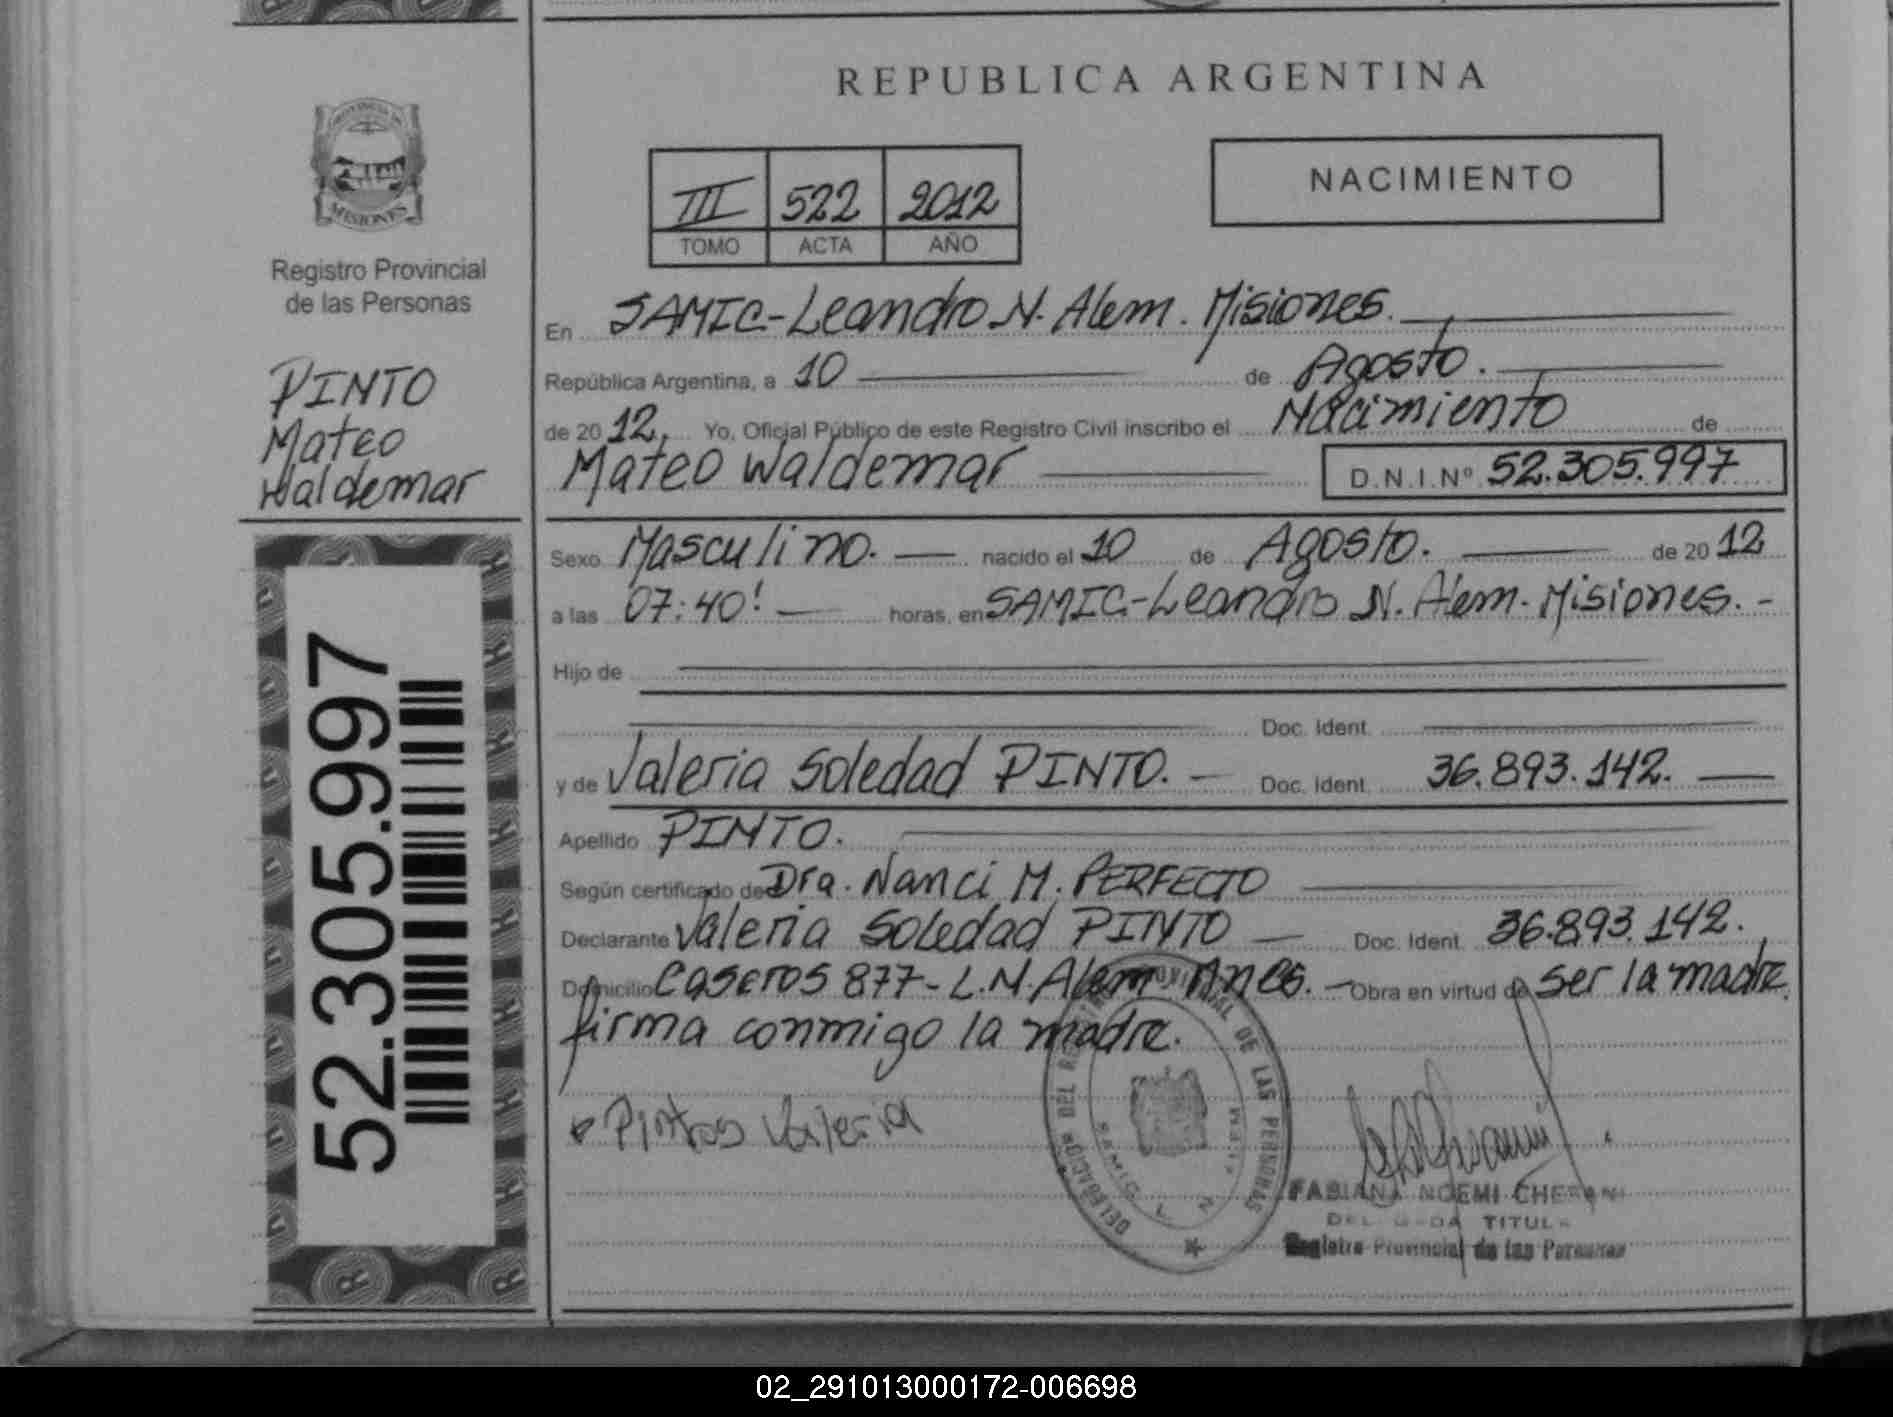 REPUBLICA ARGENTINA
PROVINCIA DE
MISIONES
Registro Provincial
de las Personas
PINTO
Mateo
Waldemar
52.305.997
III 522 2012
TOMO ACTA AÑO
NACIMIENTO
En SAMIC-Leandro N. Alem. Misiones.
República Argentina, a 10 de Agosto.
de 2012, Yo, Oficial Público de este Registro Civil inscribo el Nacimiento de
Mateo Waldemar D.N.I.Nº 52.305.997
Sexo Masculino. nacido el 10 de Agosto. de 2012
a las 07:40! horas, en SAMIC-Leandro N. Alem. Misiones. -
Hijo de
Doc. Ident.
y de Valeria Soledad PINTO. - Doc. Ident. 36.893.142.
Apellido PINTO.
Según certificado de Dra. Nanci M. PERFECTO
Declarante Valeria Soledad PINTO Doc. Ident. 36.893.142.
Domicilio Caseros 877- L.N. Alem Mnes. - Obra en virtud de ser la madre.
firma conmigo la madre.
Pintos Valeria
DELEGACION DEL REGISTRO PROVINCIAL DE LAS PERSONAS
SAMIC L N
FABIANA NOEMI CHERANI
Registro Provincial de las Personas
02_291013000172-006698